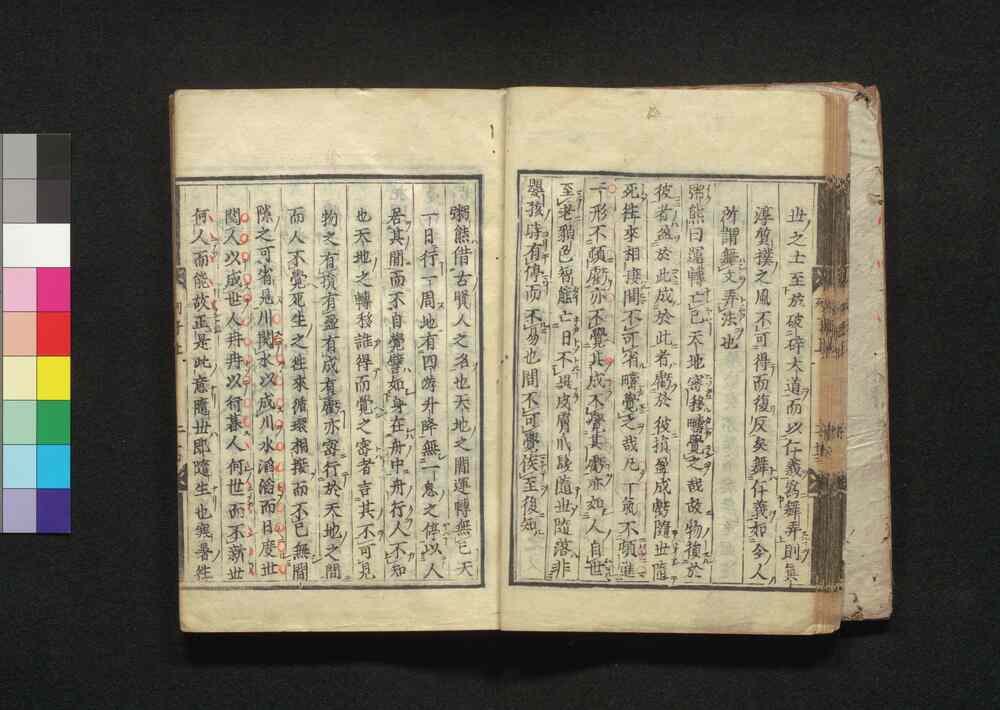 世之士至於破碎大道而以仁義為舞弄則其
淳質撲之風不可得而復反矣舞仁義如今人
所謂舞文弄法也
粥熊曰運轉亡已天地密移疇覺之哉故物損於
彼者盈於此成於此者虧於彼損盈成虧隨世隨
死往來相接間不可省疇覺之哉凡一氣不頓進
一形不頓虧亦不覺其成不覺其虧亦如人自世
至老貌色智態亡日不異皮膚爪髮隨世隨落非
嬰孩時有停而不易也間不可覺俟至後知
粥熊借古賢人之名也天地之間運轉無已天
一日行一周地有四游升降無一息之停以人
居其間而不自覺譬如身在舟中舟行人不知
也天地之轉移誰得而覺之密者言其不可見
物之有損有盈有成有虧亦密行於天地之間
而人不覺死生之往來循環相接而不已無間
隙之可省也川閱水以成川水滔滔而日度世
閱人以成世人冉冉以行暮人何世而不新世
何人而能故正是此意隨世即隨生也與暑往